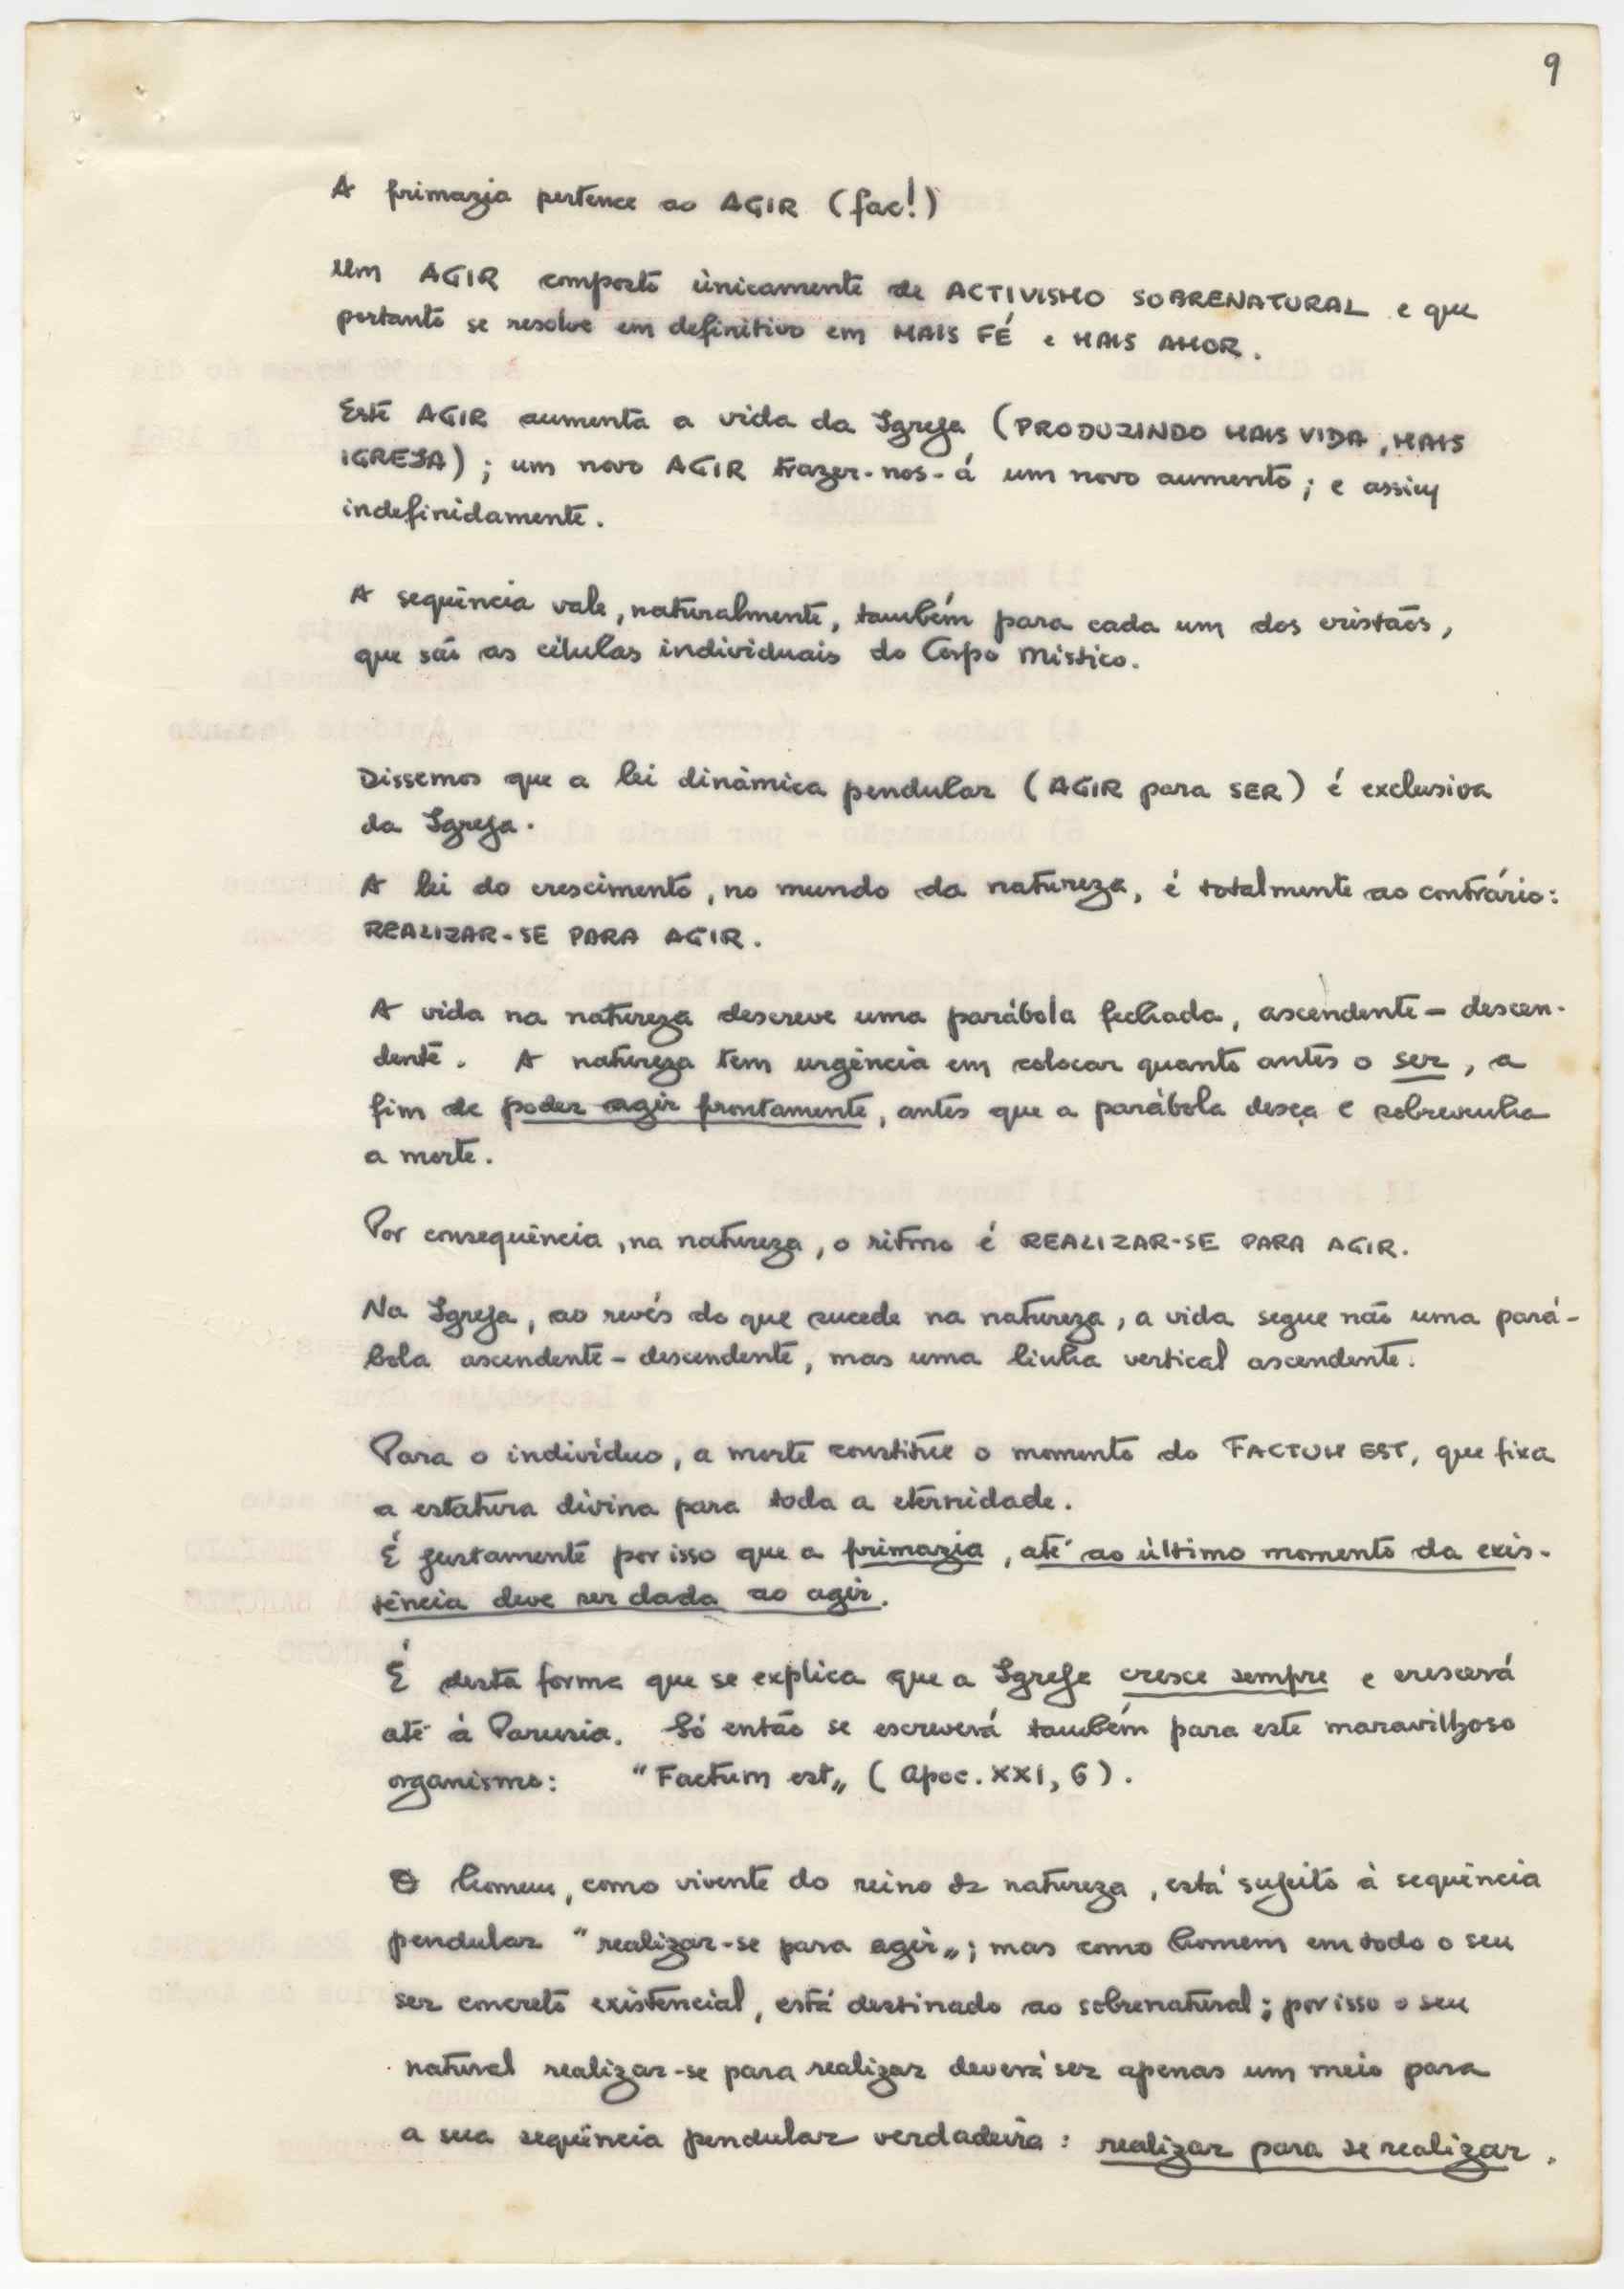 9
A primazia pertence ao AGIR (fac!)
Um AGIR composto ùnicamente de ACTIVISMO SOBRENATURAL e que
portanto se resolve em definitivo em MAIS FÉ e MAIS AMOR.
Este AGIR aumenta a vida da Igreja (PRODUZINDO MAIS VIDA, MAIS
IGREJA); um novo AGIR trazer-nos-á um novo aumento; e assim
indefinidamente.
A sequência vale, naturalmente, também para cada um dos cristãos,
que são as células individuais do Corpo Místico.
Dissemos que a lei dinâmica pendular (AGIR para SER) é exclusiva
da Igreja.
A lei do crescimento, no mundo da natureza, é totalmente ao contrário:
REALIZAR-SE PARA AGIR.
A vida na natureza descreve uma parábola fechada, ascendente - descen-
dente. A natureza tem urgência em colocar quanto antes o ser, a
fim de poder agir prontamente, antes que a parábola desça e sobrevenha
a morte.
Por consequência, na natureza, o ritmo é REALIZAR-SE PARA AGIR.
Na Igreja, ao revés do que sucede na natureza, a vida segue não uma pará-
bola ascendente - descendente, mas uma linha vertical ascendente.
Para o indivíduo, a morte constitue o momento do FACTUM EST, que fixa
a estatura divina para toda a eternidade.
É justamente por isso que a primazia, até ao último momento da exis-
tência deve ser dada ao agir.
É desta forma que se explica que a Igreja cresce sempre e crescerá
até à Parusia. Só então se escreverá também para este maravilhoso
organismo: "Factum est„ (Apoc. XXI, 6).
O homem, como vivente do reino da natureza, está sujeito à sequência
pendular "realizar-se para agir„; mas como homem em todo o seu
ser concreto existencial, está destinado ao sobrenatural; por isso o seu
natural realizar-se para realizar deverá ser apenas um meio para
a sua sequência pendular verdadeira: realizar para se realizar.